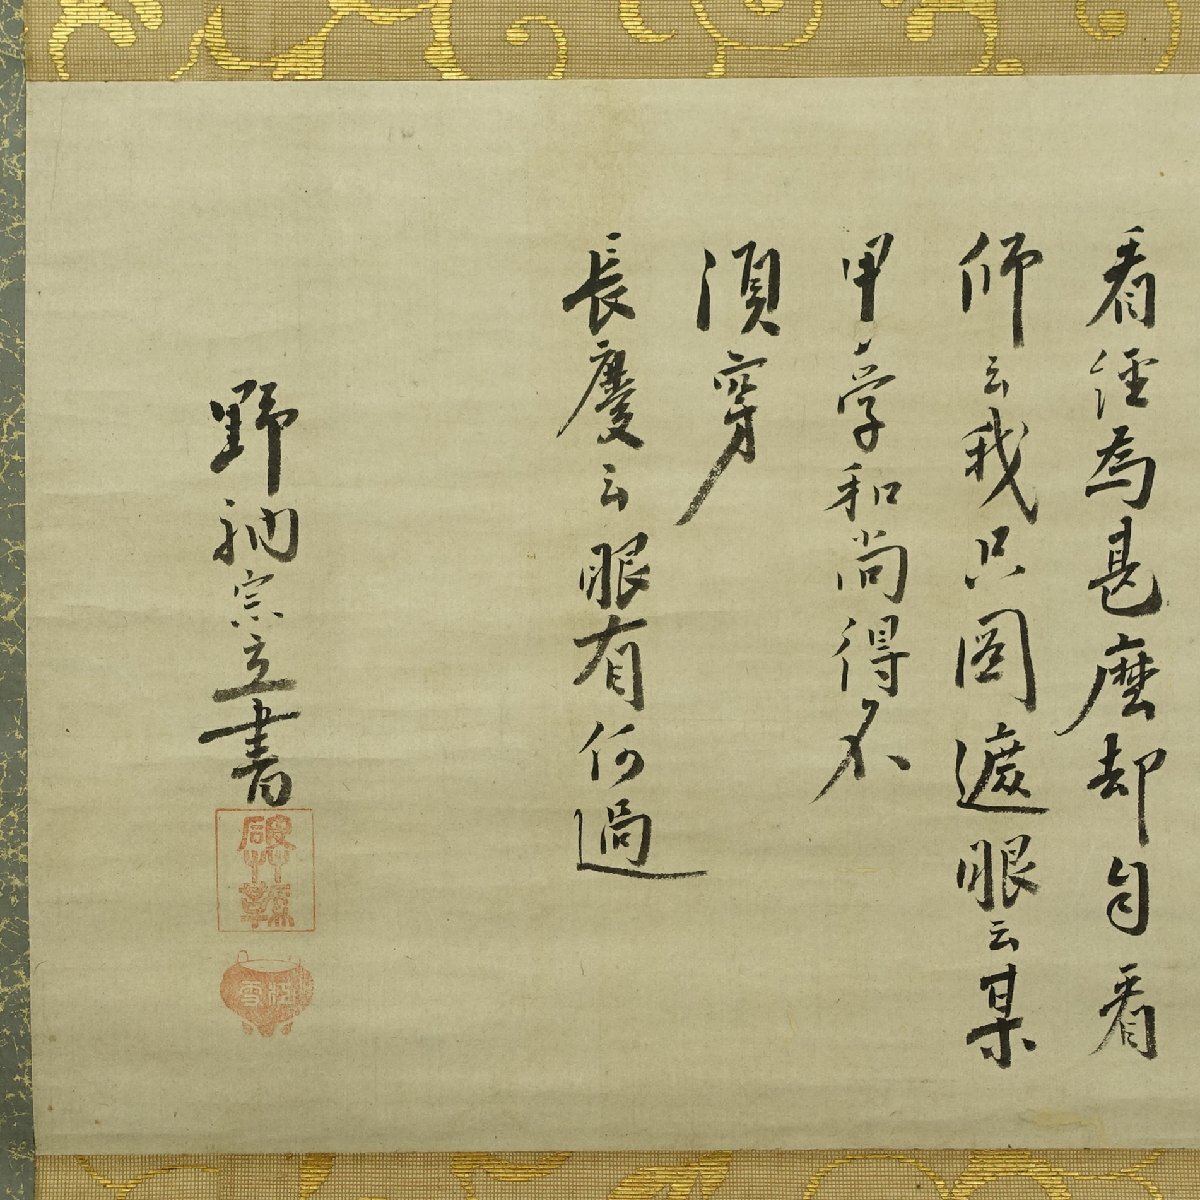 看経為甚麼却自看
師云我只図遮眼云某
甲学和尚得不
須穿
長慶云眼有何過
野衲宗立書